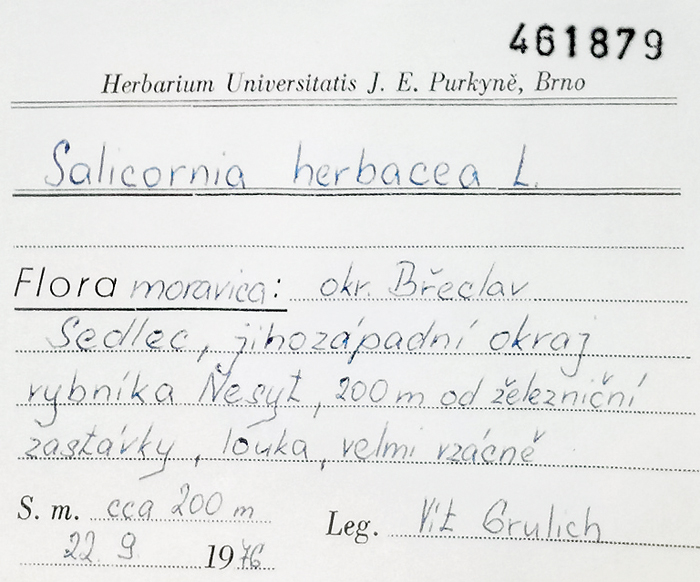 461879
Herbarium Universitatis J. E. Purkyně, Brno
Salicornia herbacea L.
Flora moravica: okr. Břeclav
Sedlec, jihozápadní okraj
rybníka Nesyt, 200 m od železniční
zastávky, louka, velmi vzácně
S. m. cca 200 m
Leg. Vít Grulich
22. 9. 1976